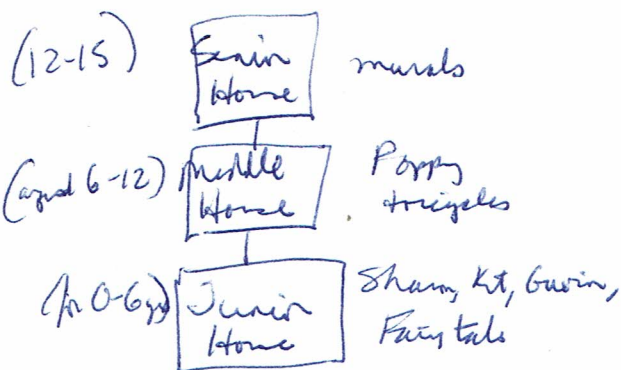 (12-15) Senior House murals
(aged 6-12) Middle House Poppy tricycles
(for 0-6yr) Junior House Sharon, Kit, Gavin,
Fairy tale